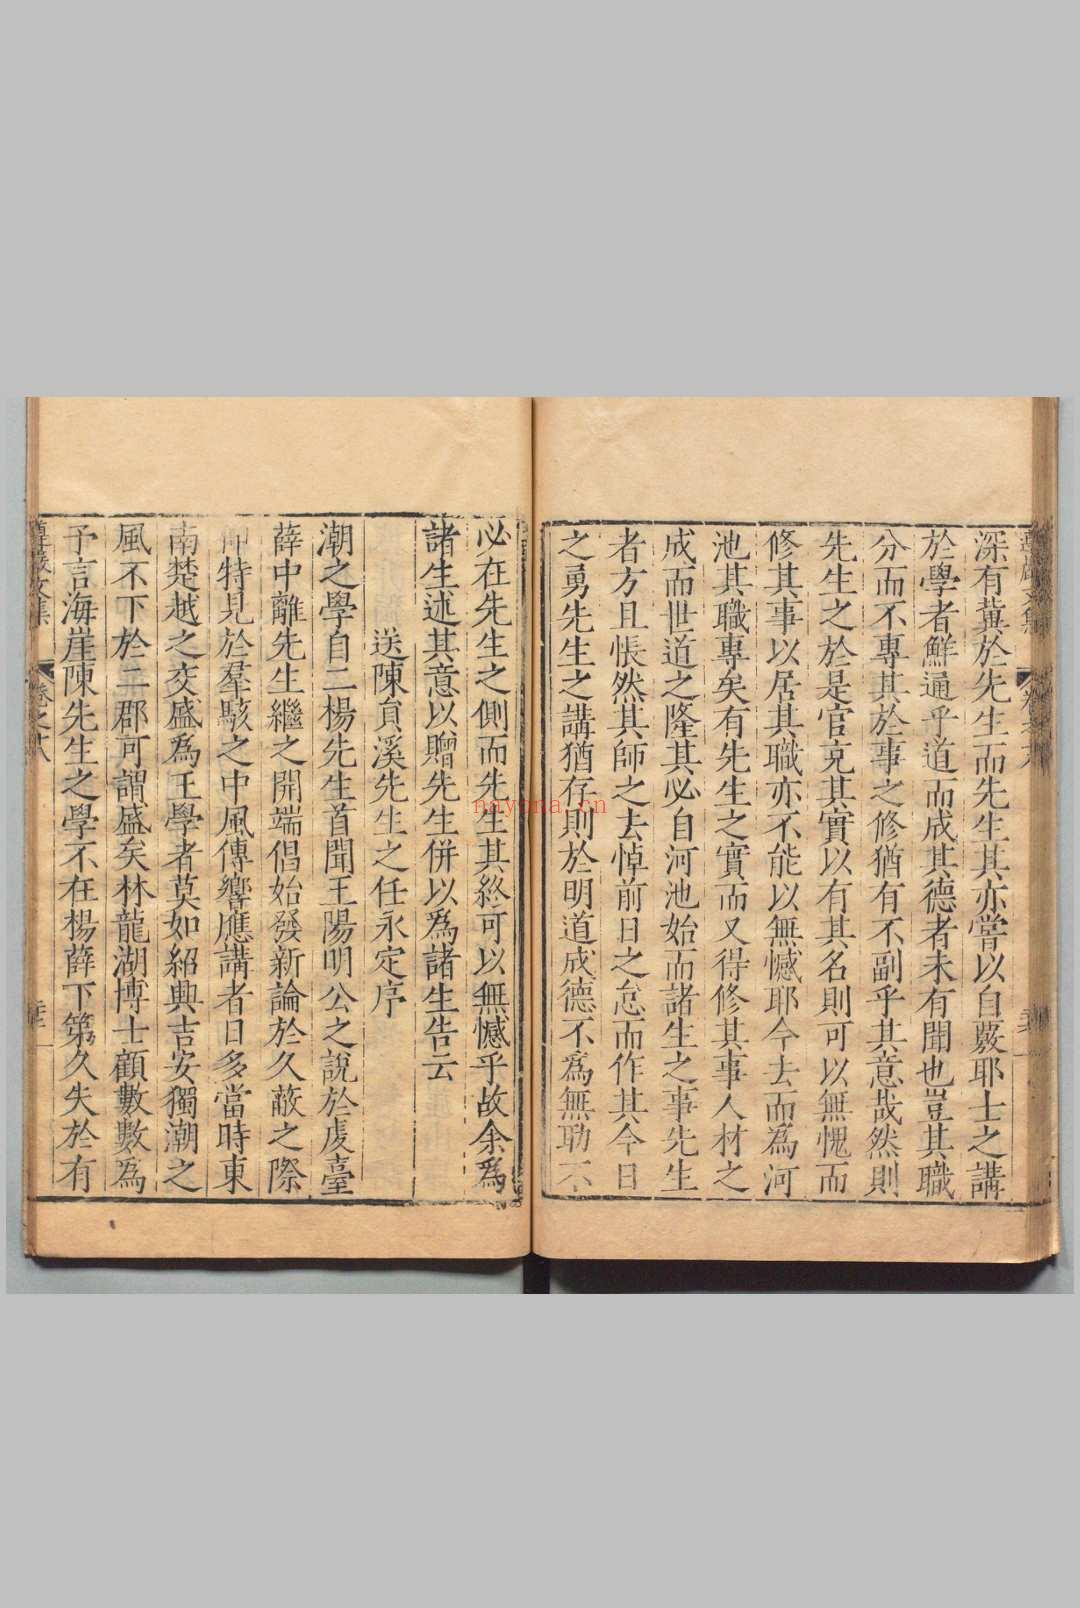 深有冀於先生而先生其亦嘗以自蔽耶士之講
於學者鮮通乎道而成其德者未有聞也豈其職
分而不專其於事之修猶有不副乎其意哉然則
先生之於是官克其實以有其名則可以無愧而
修其事以居其職亦不能以無憾耶今去而為河
池其職專矣有先生之實而又得修其事人材之
成而世道之隆其必自河池始而諸生之事先生
者方且悵然其師之去悼前日之怠而作其今日
之勇先生之講猶存則於明道成德不為無助不
必在先生之側而先生其終可以無憾乎故余為
諸生述其意以贈先生併以為諸生告云
送陳員溪先生之任永定序
潮之學自二楊先生首聞王陽明公之說於虔臺
薛中離先生繼之開端倡始發新論於久蔽之際
仰特見於羣駭之中風傳響應講者日多當時東
南楚越之交盛為王學者莫如紹興吉安獨潮之
風不下於二郡可謂盛矣林龍湖博士顧數數為
予言海崖陳先生之學不在楊薛下第久失於有
遵巖文集
卷之十八
nayona.cn